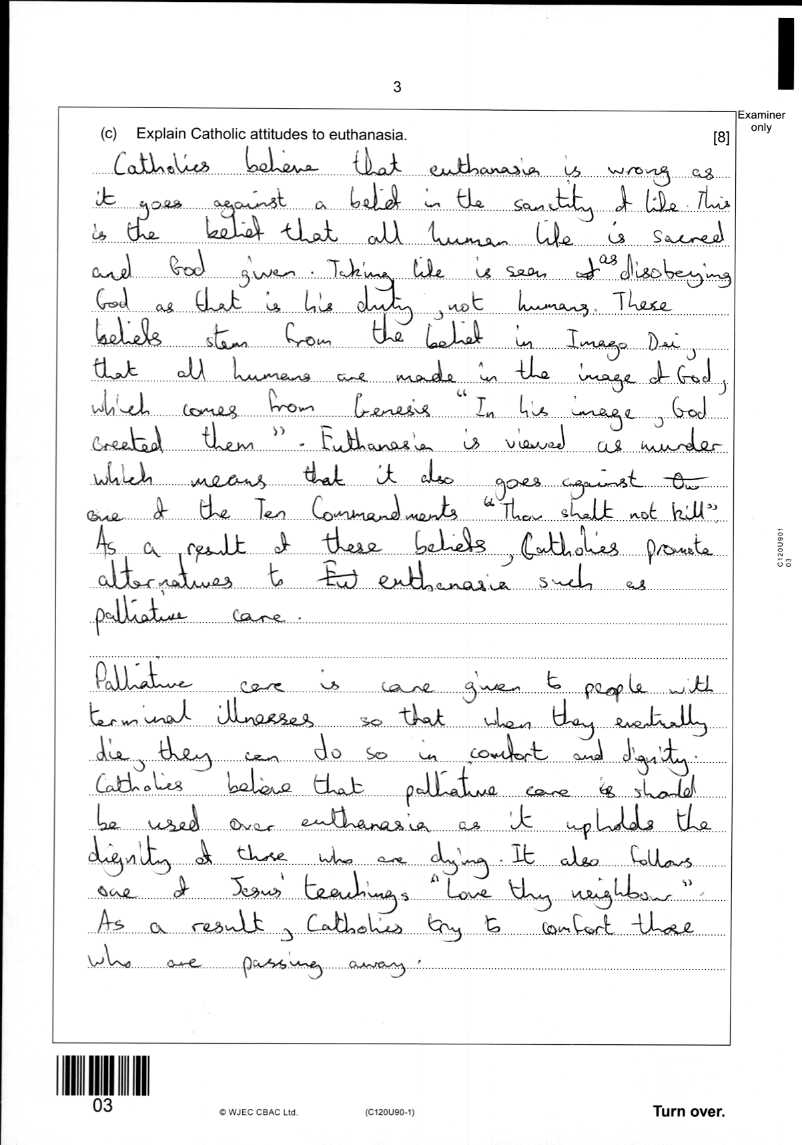 3
Examiner
only
(c) Explain Catholic attitudes to euthanasia. [8]
Catholics believe that euthanasia is wrong as
it goes against a belief in the sanctity of life. This
is the belief that all human life is sacred
and God given. Taking life is seen of as disobeying
God as that is his duty, not humans. These
beliefs stem from the belief in Imago Dei,
that all humans are made in the image of God,
which comes from Genesis "In his image, God
created them". Euthanasia is viewed as murder
which means that it also goes against
one of the Ten Commandments "Thou shalt not kill".
As a result of these beliefs, Catholics promote
alternatives to Eut euthanasia such as
palliative care.
Palliative care is care given to people with
terminal illnesses so that when they eventually
die, they can do so in comfort and dignity.
Catholics believe that palliative care is should
be used over euthanasia as it upholds the
dignity of those who are dying. It also follows
one of Jesus' teachings "Love thy neighbour".
As a result, Catholics try to comfort those
who are passing away.
C120U901
03
03
© WJEC CBAC Ltd.
(C120U90-1)
Turn over.